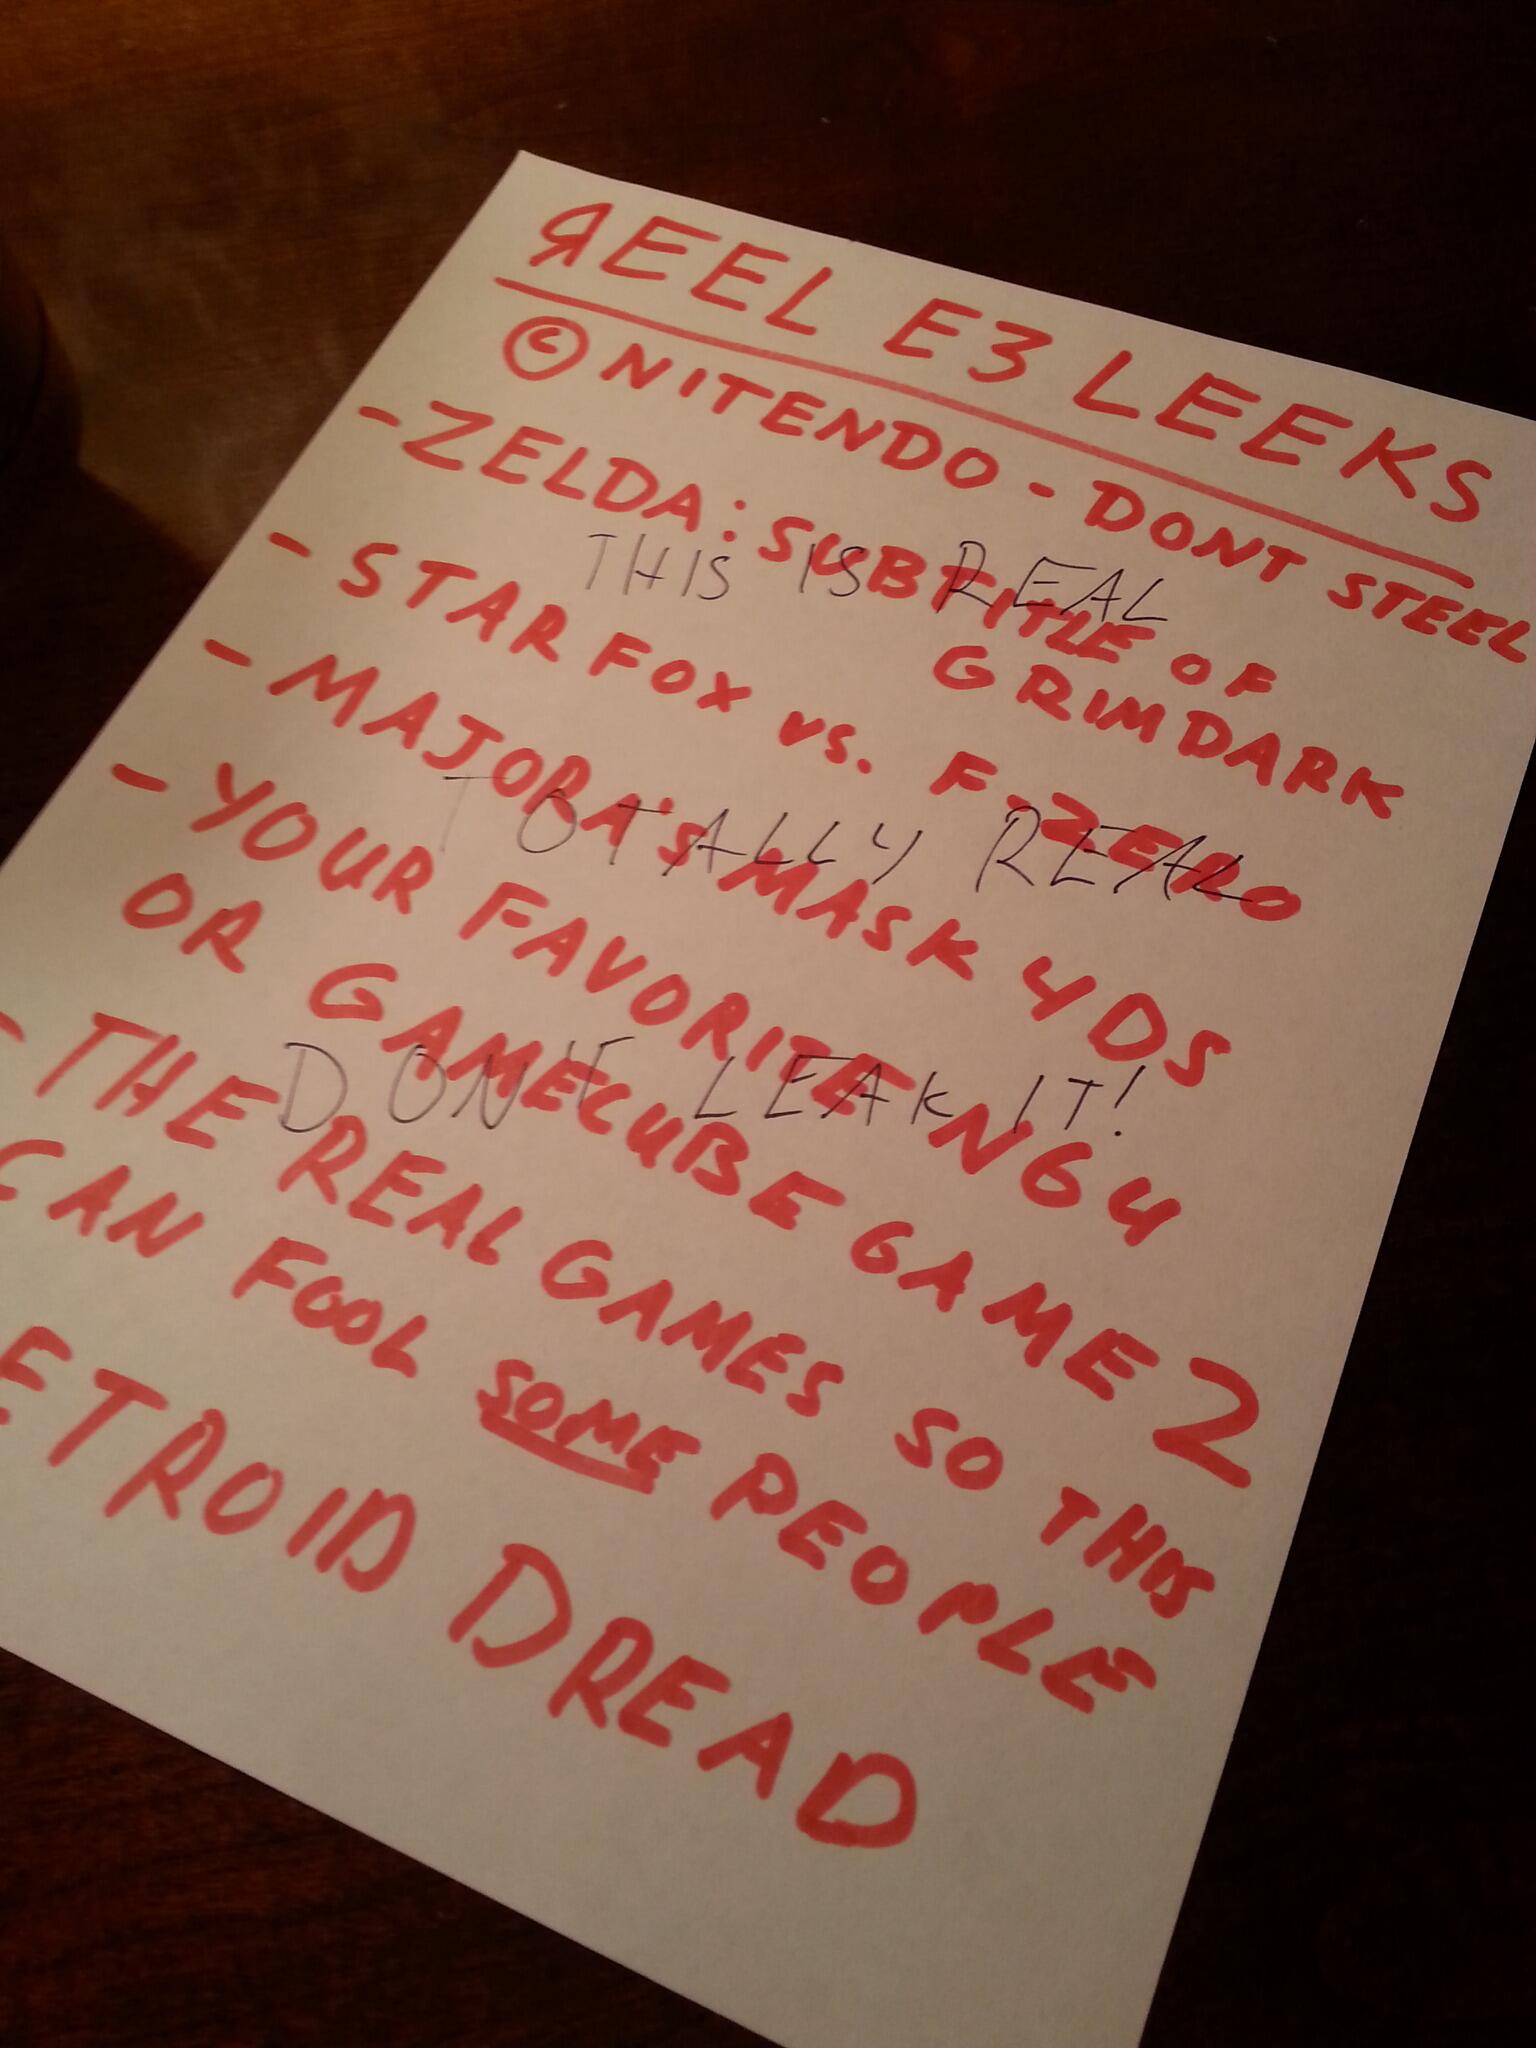 ЯEEL E3 LEEKS
© NITENDO - DONT STEEL
- ZELDA: SUBTITLE OF
GRIMDARK
THIS IS REAL
- STAR FOX VS. F-ZERO
- MAJORA'S MASK 4DS
TOTALLY REAL
- YOUR FAVORITE N64
OR GAMECUBE GAME 2
DON'T LEAK IT!
- THE REAL GAMES SO THIS
CAN FOOL SOME PEOPLE
ETROID DREAD